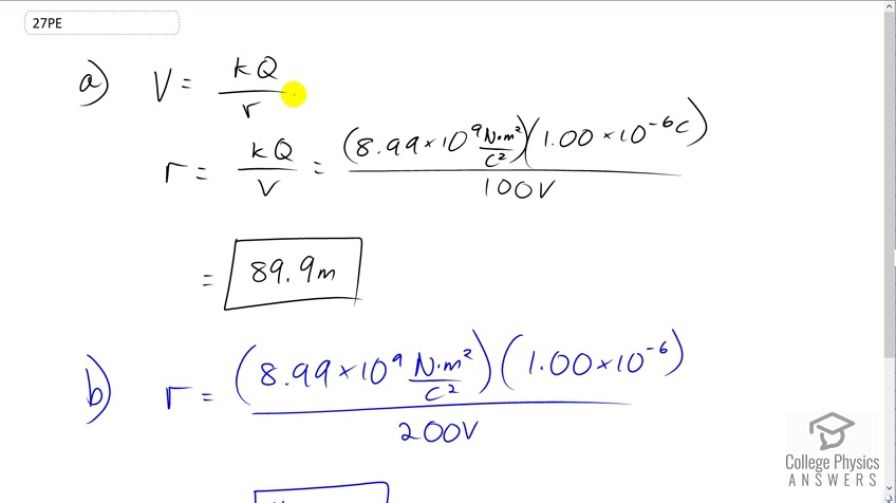 27PE
a) V = kQ/r
r = kQ/V = (8.99×10⁹ N·m²/C²)(1.00×10⁻⁶C)/100V
= 89.9m
b) r = (8.99×10⁹ N·m²/C²)(1.00×10⁻⁶)/200V
College Physics
ANSWERS